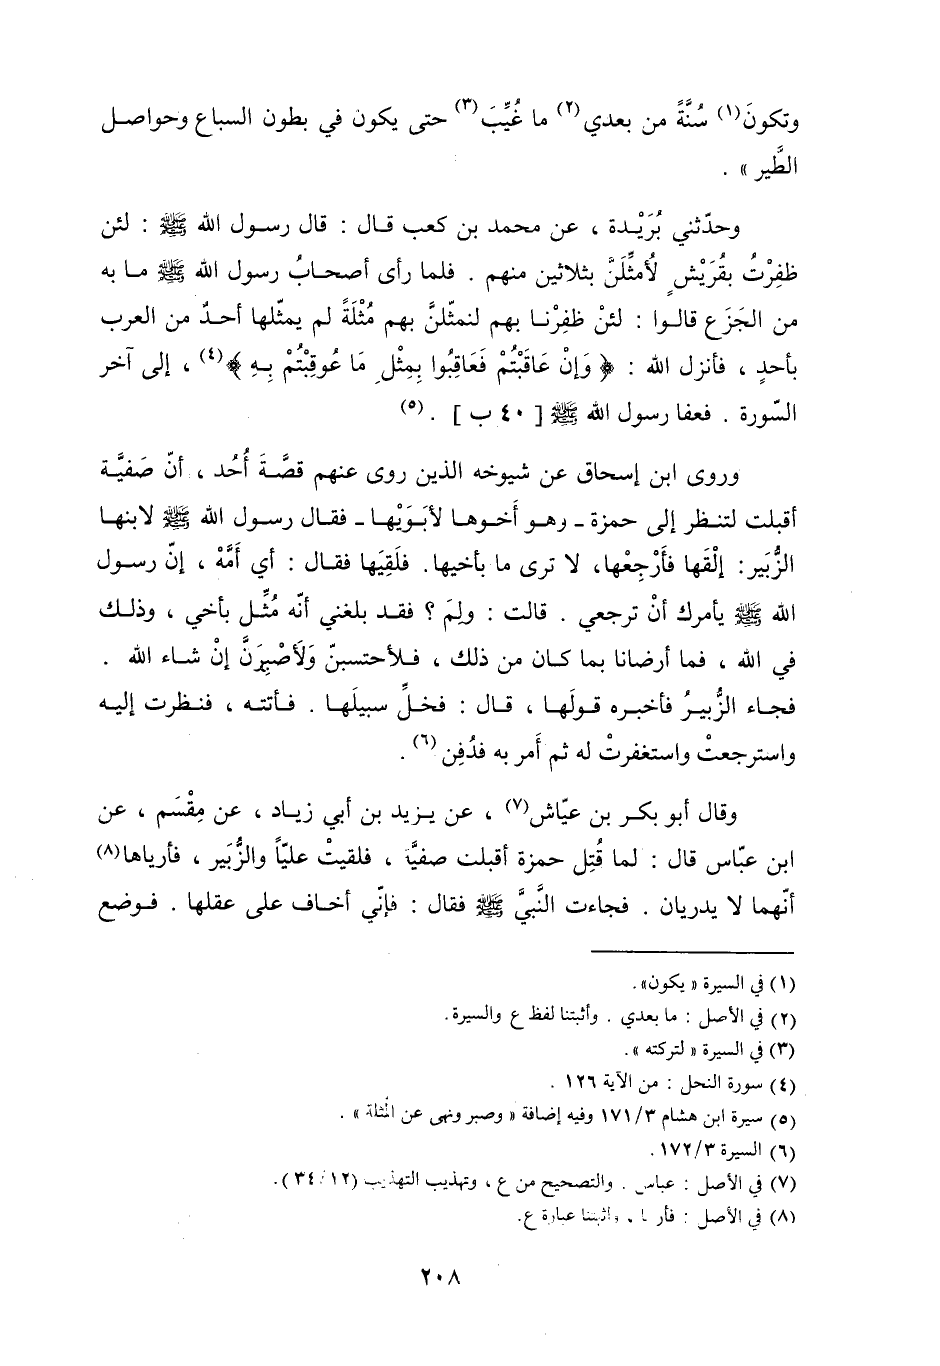 وتكونَ(١) سُنَّةً من بعدي(٢) ما غُيِّبَ(٣) حتى يكون في بطون السباع وحواصل
الطَّير » .
وحدّثني بُرَيْدة ، عن محمد بن كعب قال : قال رسول الله ﷺ : لئن
ظفِرْتُ بقُرَيْشٍ لأُمثِّلَنَّ بثلاثين منهم . فلما رأى أصحابُ رسول الله ﷺ ما به
من الجَزَع قالوا : لئنْ ظفِرْنا بهم لنمثّلنَّ بهم مُثْلَةً لم يمثّلها أحدٌ من العرب
بأحدٍ ، فأنزل الله : ﴿ وَإِنْ عَاقَبْتُمْ فَعَاقِبُوا بِمِثْلِ مَا عُوقِبْتُمْ بِهِ ﴾(٤) ، إلى آخر
السّورة . فعفا رسول الله ﷺ [ ٤٠ ب ] . (٥)
وروى ابن إسحاق عن شيوخه الذين روى عنهم قصَّةَ أُحُد ، أنّ صَفيَّة
أقبلت لتنظر إلى حمزة ـ وهو أَخوها لأبَوَيْها ـ فقال رسول الله ﷺ لابنها
الزُّبَير : إلْقَها فأَرْجِعْها، لا ترى ما بأخيها. فلَقِيَها فقال : أي أمَّهْ ، إنّ رسول
الله ﷺ يأمرك أنْ ترجعي . قالت : ولِمَ ؟ فقد بلغني أنّه مُثِّل بأخي ، وذلك
في الله ، فما أرضانا بما كان من ذلك ، فلأحتسبنّ وَلَأصْبِرَنَّ إنْ شاء الله .
فجاء الزُّبيرُ فأخبره قولَها ، قال : فخلِّ سبيلَها . فأتته ، فنظرت إليه
واسترجعتْ واستغفرتْ له ثم أَمر به فدُفِن(٦) .
وقال أبو بكر بن عيّاش(٧) ، عن يزيد بن أبي زياد ، عن مِقْسَم ، عن
ابن عبّاس قال : لما قُتِل حمزة أقبلت صفيَّة ، فلقيتْ عليّاً والزُّبَير ، فأرياها(٨)
أنّهما لا يدريان . فجاءت النَّبيَّ ﷺ فقال : فإنّي أخاف على عقلها . فوضع
(١) في السيرة « يكون».
(٢) في الأصل : ما بعدي . وأثبتنا لفظ ع والسيرة.
(٣) في السيرة « لتركته ».
(٤) سورة النحل : من الآية ١٢٦ .
(٥) سيرة ابن هشام ١٧١/٣ وفيه إضافة « وصبر ونهى عن المُثلة » .
(٦) السيرة ١٧٢/٣.
(٧) في الأصل : عباس . والتصحيح من ع ، وتهذيب التهذيب (٣٤/١٢).
(٨) في الأصل : وأثبتنا عبارة ع.
٢٠٨